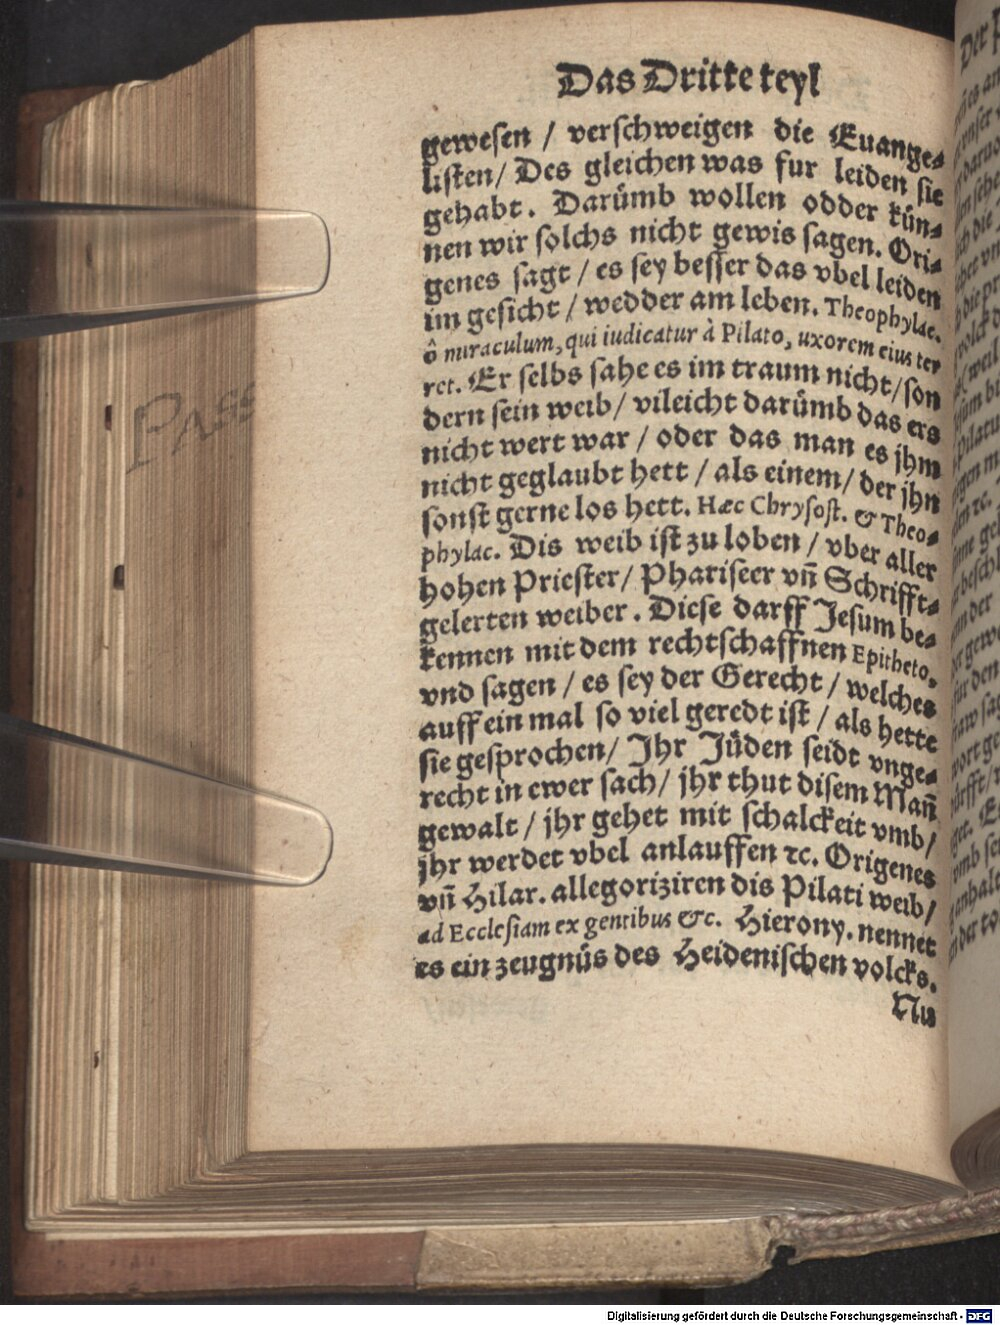 Das Dritte teyl
gewesen / verschweigen die Euange-
listen/ Des gleichen was fur leiden sie
gehabt. Darümb wollen odder kün-
nen wir solchs nicht gewis sagen. Ori-
genes sagt / es sey besser das vbel leiden
im gesicht / wedder am leben. Theophylac.
ô miraculum, qui iudicatur à Pilato, uxorem eius ter
ret. Er selbs sahe es im traum nicht/son
dern sein weib/ vileicht darümb das ers
nicht wert war / oder das man es jhm
nicht geglaubt hett / als einem/ der jhn
sonst gerne los hett. Hæc Chrysost. & Theo-
phylac. Dis weib ist zu loben / vber aller
hohen Priester/ Phariseer vñ Schrifft-
gelerten weiber. Diese darff Jesum be-
kennen mit dem rechtschaffnen Epitheto,
vnd sagen / es sey der Gerecht / welches
auff ein mal so viel geredt ist / als hette
sie gesprochen/ Jhr Jüden seidt vnge-
recht in ewer sach/ jhr thut disem Mañ
gewalt / jhr gehet mit schalckeit vmb/
jhr werdet vbel anlauffen ꝛc. Origenes
vñ Hilar. allegoriziren dis Pilati weib/
ad Ecclesiam ex gentibus &c. Hierony. nennet
es ein zeugnüs des Heidenischen volcks.
Nu
PASS
Digitalisierung gefördert durch die Deutsche Forschungsgemeinschaft - DFG